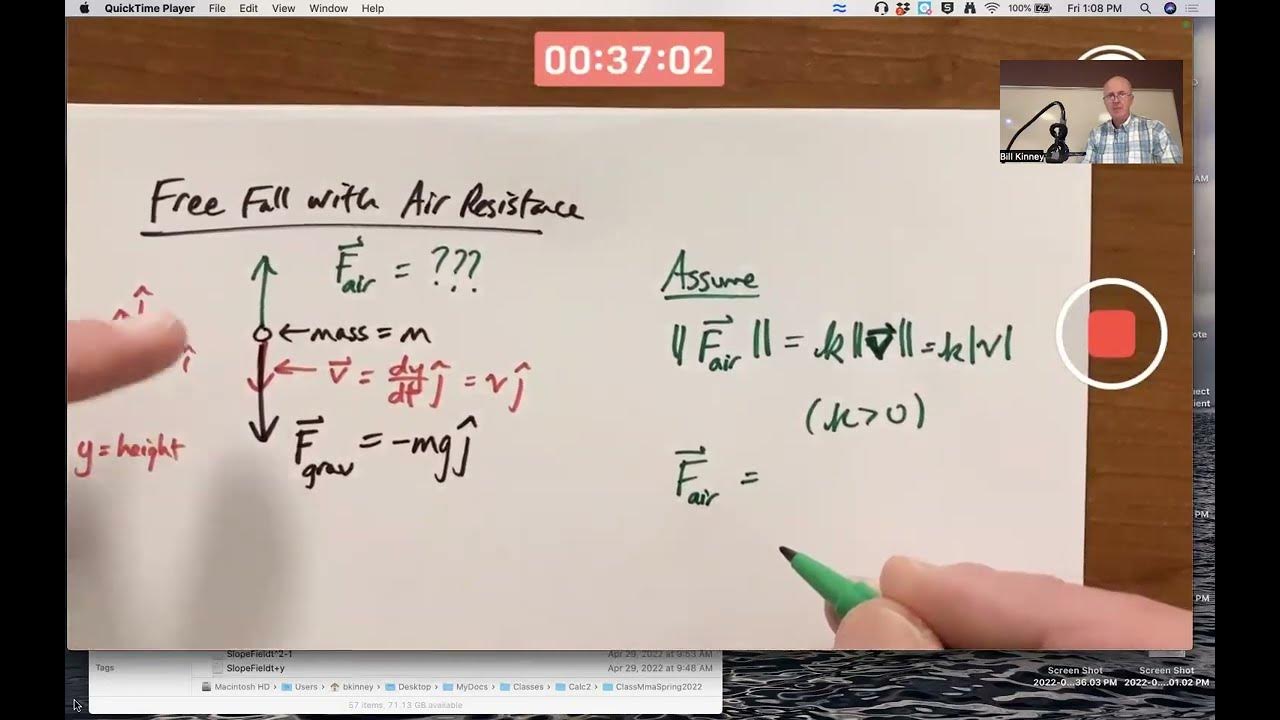 QuickTime Player File Edit View Window Help 100% Fri 1:08 PM
00:37:02
Bill Kinney
Free Fall with Air Resistance
F⃗air = ???
ĵ
î
←mass = m
← v⃗ = dy/dt ĵ = vĵ
F⃗grav = -mgĵ
y = height
Assume
||F⃗air|| = k||v⃗|| = k|v|
(k>0)
F⃗air =
AM
PM
PM
Tags
SlopeFieldt^2-1 Apr 29, 2022 at 9:53 AM
SlopeFieldt+y Apr 29, 2022 at 9:48 AM
Macintosh HD › Users › bkinney › Desktop › MyDocs › Classes › Calc2 › ClassMmaSpring2022
57 items, 71.13 GB available
Screen Shot
2022-0....36.03 PM
Screen Shot
2022-0....01.02 PM